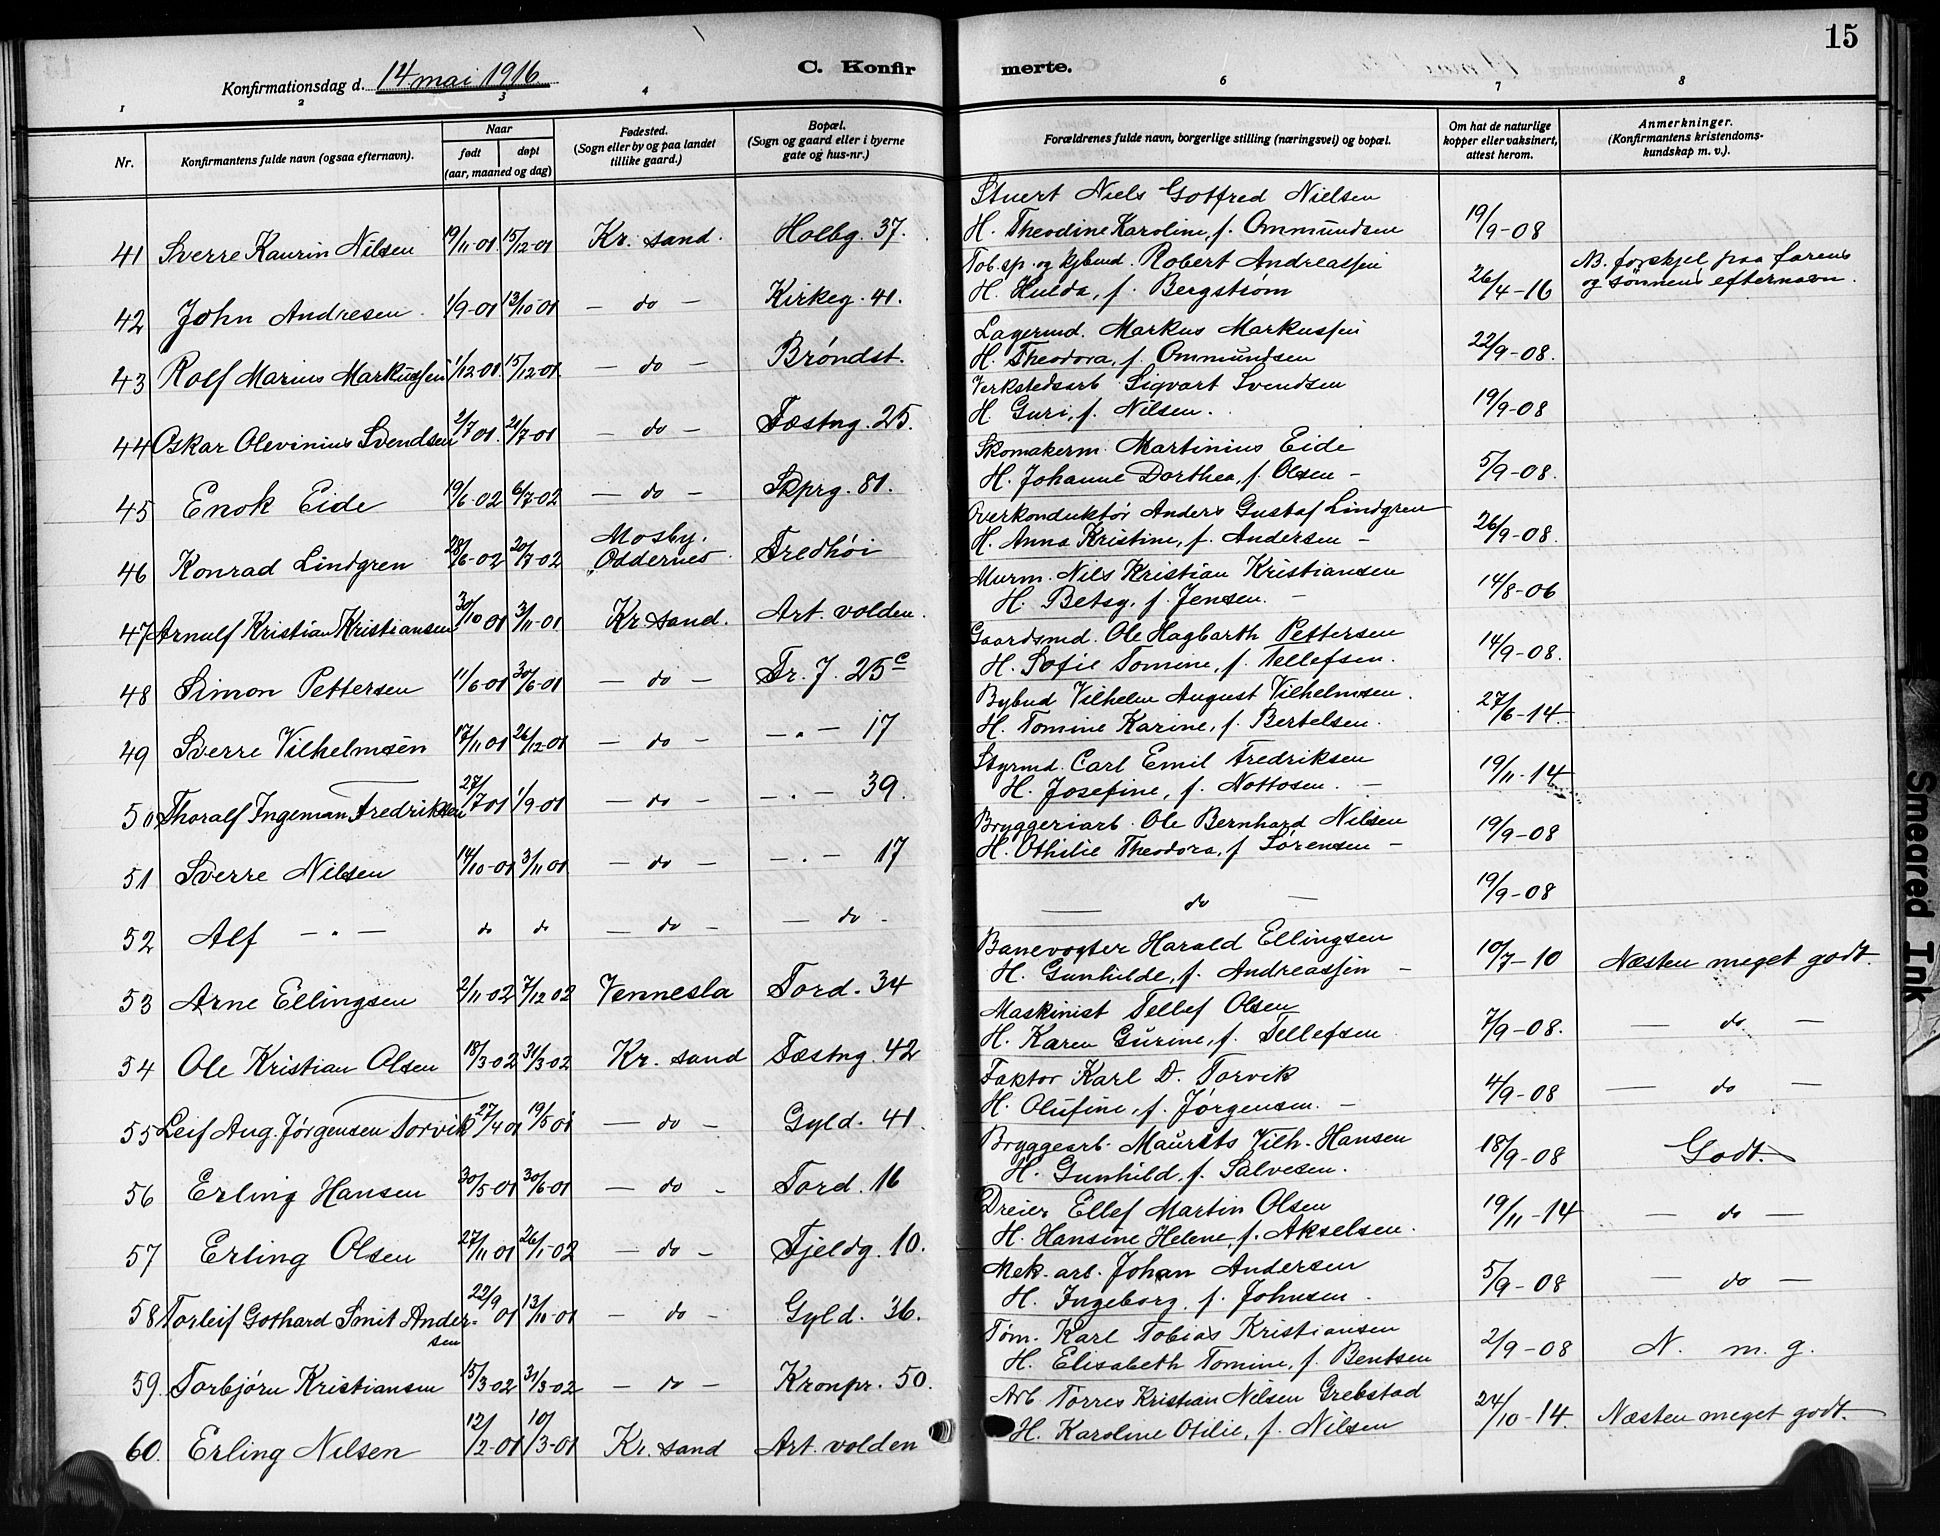 15
Konfirmationsdag d. 14 mai 1916
C. Konfir
merte.
1 2 3 4 6 7 8
Nr.
Konfirmantens fulde navn (ogsaa efternavn).
Naar
født
døpt
(aar, maaned og dag)
Fødested.
(Sogn eller by og paa landet
tillike gaard.)
Bopæl.
(Sogn og gaard eller i byerne
gate og hus-nr.)
Forældrenes fulde navn, borgerlige stilling (næringsvei) og bopæl.
Om hat de naturlige
kopper eller vaksinert,
attest herom.
Anmerkninger.
(Konfirmantens kristendoms-
kundskap m. v.).
Stuert Niels Gotfred Nielsen
41 Sverre Kaurin Nilsen 19/11-01 15/12-01 Kr. sand. Holbg. 37. H. Theodine Karoline, f. Ommundsen 19/9-08
Tob.sp. og kjbmd. Robert Andreassen
42 John Andresen 1/9-01 13/10 01 — do — Kirkeg. 41. H. Hulda, f. Bergstrøm 26/4-16 NB. forskjel paa farens
og sønnens efternavn.
Lagermd. Markus Markussen
43 Rolf Marius Markussen 1/12-01 15/12-01 — do — Brøndst. H. Theodora, f. Ommundsen 22/9-08.
Verkstedsarb Sigvart Svendsen
44 Oskar Olevinius Svendsen 2/7 01. 21/7-01 — do — Fæstng. 25. H. Guri, f. Nilsen. 19/9-08
Skomakerm. Martinius Eide
45 Enok Eide 19/6-02 6/7-02 — do — Skprg. 81. H. Johanne Dorthea, f. Olsen — 5/9-08.
Overkonduktør Anders Gustaf Lindgren
46 Konrad Lindgren 28/6-02 20/7-02 Mosby, Oddernes Fredhøi H. Anna Kristine, f. Andersen — 26/9-08.
Murm. Nils Kristian Kristiansen
47 Arnulf Kristian Kristiansen 30/10 01 3/11-01 Kr. sand. Art. volden. H. Betsy, f. Jensen. — 14/8-06
Gaardsmd. Ole Hagbarth Pettersen
48 Simon Pettersen 11/6-01 30/6-01 — do — Tr. J. 25c H. Sofie Tomine, f. Tellefsen. 14/9-08.
Bybud Vilhelm August Vilhelmsen.
49 Sverre Vilhelmsen 17/11 01 26/12-01 — do — — " — 17 H. Tomine Karine, f. Bertelsen. 27/6-14.
Styrmd. Carl Emil Fredriksen
50 Thoralf Ingeman Fredriksen 27/7 01 1/9-01 — do — — " — 39. H. Josefine, f. Nottosen. — 19/11-14
Bryggeriarb. Ole Bernhard Nilsen
51 Sverre Nilsen 14/10-01 3/11 01 — do — — " — 17 H. Othilie Theodora, f Sørensen — 19/9-08
52 Alf — " — do do — do — — do - — do — 19/9-08
Banevogter Harald Ellingsen
53 Arne Ellingsen 2/11-02 7/12 02 Vennesla Tord. 34 H. Gunhilde, f. Andreassen — 10/7-10 Næsten meget godt.
Maskinist Tellef Olsen
54 Ole Kristian Olsen 18/3-02 31/3-02 Kr. sand Fæstng. 42 H. Karen Gurine, f. Tellefsen 7/9-08. — do —
Faktor Karl D. Torvik
55 Leif Aug. Jørgensen Torvik 27/4 01 19/5 01 — do — Gyld. 41. H. Olufine, f. Jørgensen. — 4/9-08 — do —
Bryggearb. Maurits Vilh. Hansen
56 Erling Hansen 30/5-01 30/6-01 — do — Tord. 16 H. Gunhild, f. Salvesen. 18/9-08 Godt.
Dreier Ellef Martin Olsen
57 Erling Olsen 27/11 01 26/1-02 — do — Fjeldg. 10. H. Hansine Helene, f. Akselsen. 19/11-14 — do —
Mek. arb. Johan Andersen
58 Torleif Gothard Smit Ander-
sen 22/9 01 13/10-01 — do — Gyld. 36. H. Ingeborg, f. Johnsen. 5/9-08 — do —
Tøm. Karl Tobias Kristiansen
59. Torbjørn Kristiansen 15/3-02 31/3-02 — do — Kronpr. 50. H. Elisabeth Tomine, f. Bentsen 2/9-08 N. m. g.
Arb. Torres Kristian Nilsen Grebstad
60. Erling Nilsen 12/2-01 10/3-01 Kr. sand Art. volden H. Karoline Otilie, f. Nilsen 24/10-14. Næsten meget godt.
Smeared Ink